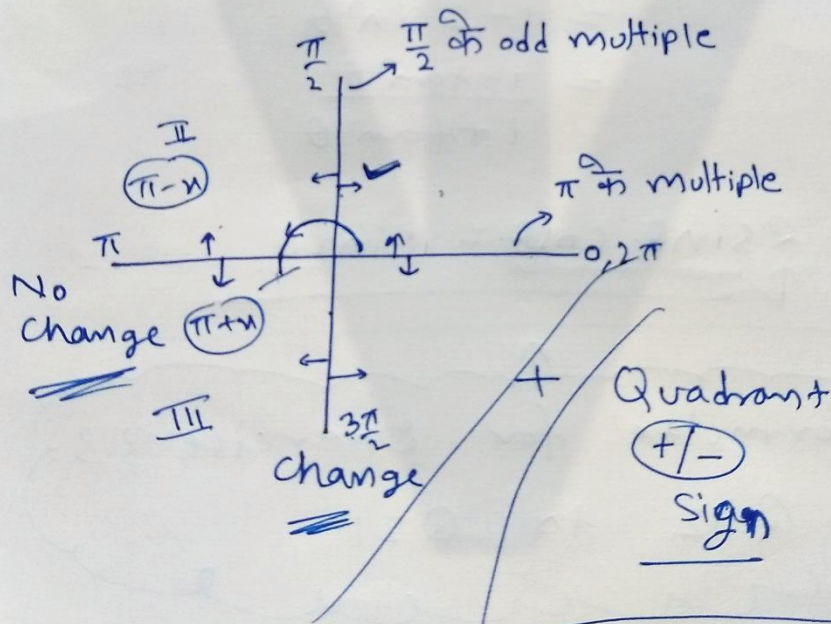 π/2
π/2 के odd multiple
II
π-x
π के multiple
π
0, 2π
No
Change
π+x
III
3π/2
Change
+
Quadrant
+/-
Sign